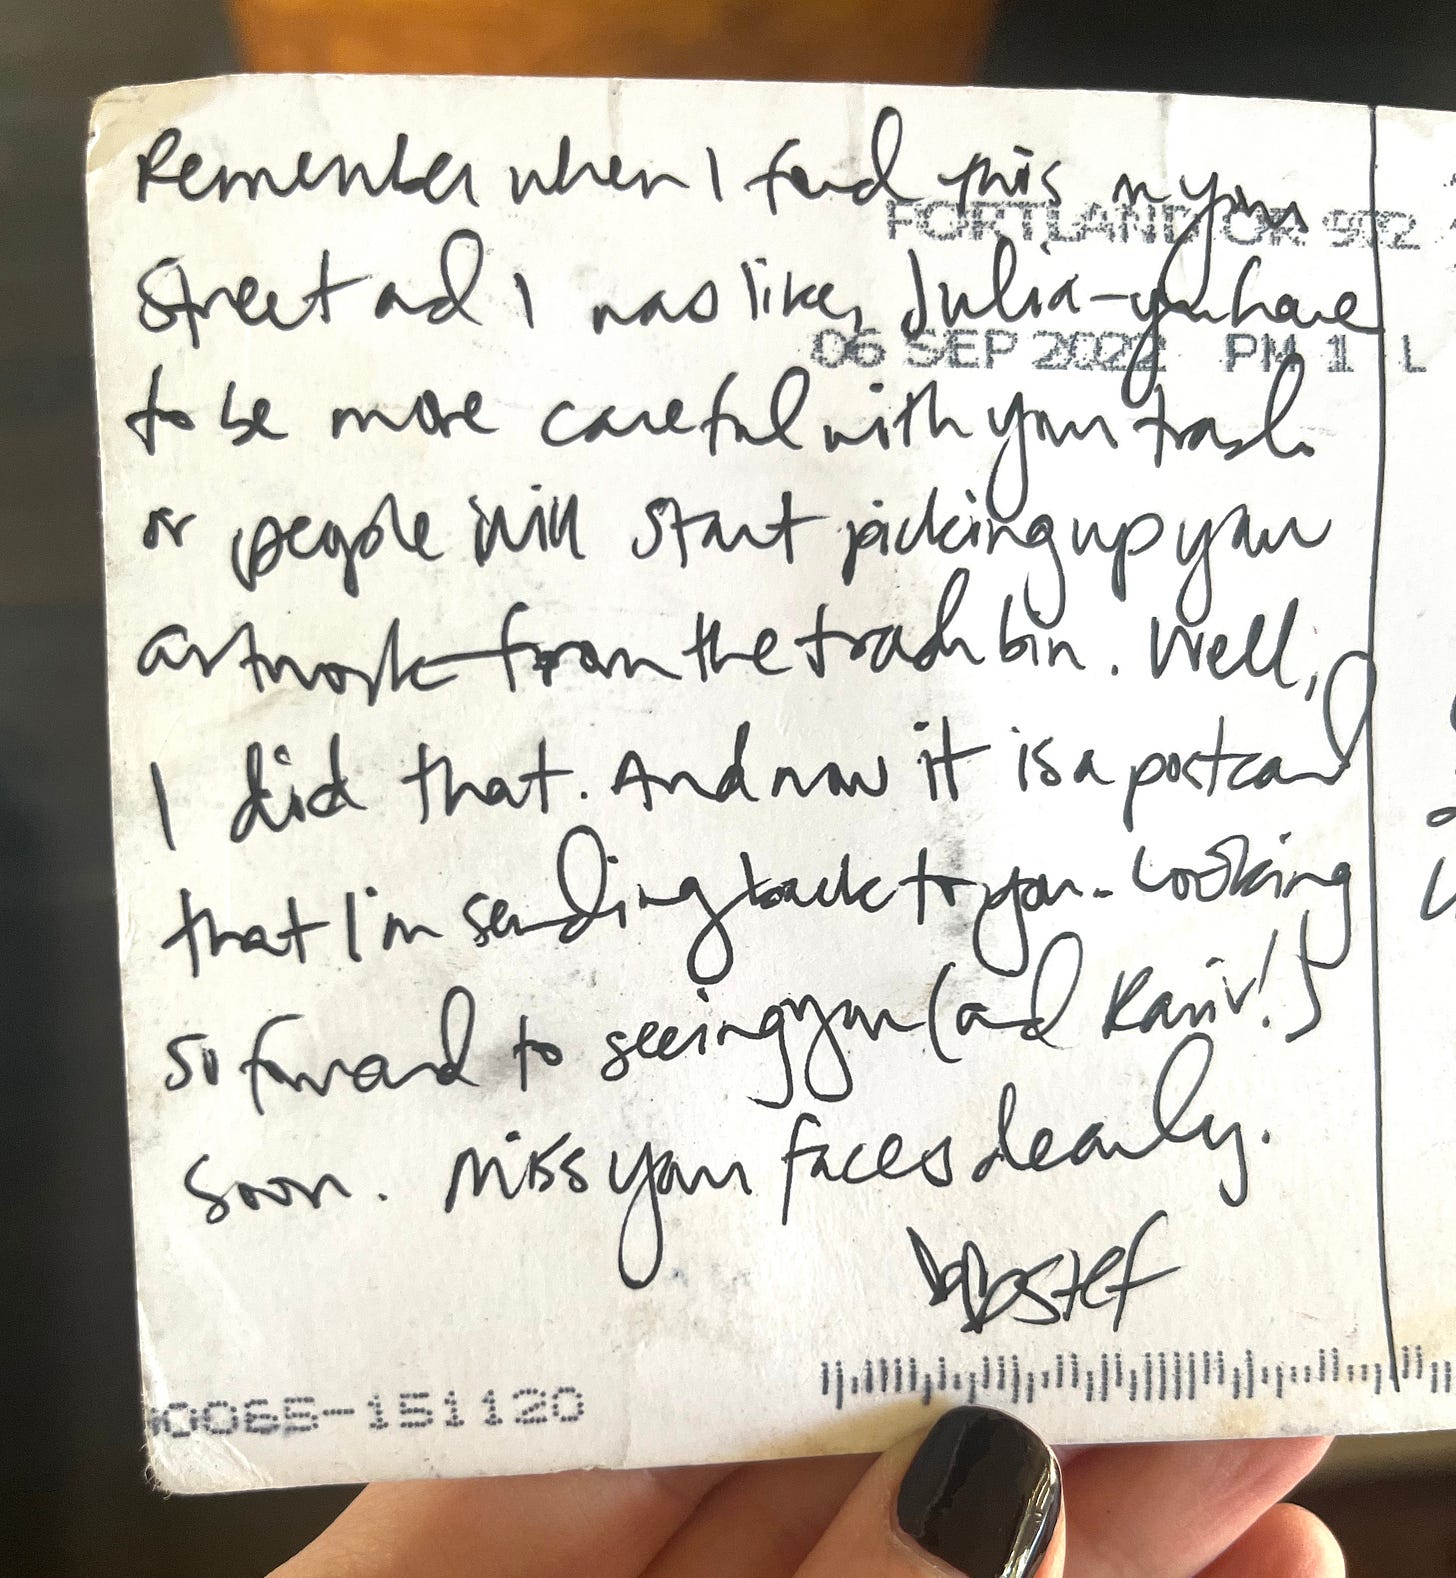 Remember when I found this in your
PORTLAND OR 972
street and I was like, Julia - you have
06 SEP 2022 PM 1 L
to be more careful with your trash
or people will start picking up your
artwork from the trash bin. Well,
I did that. And now it is a postcard
that I'm sending back to you. Looking
so forward to seeing you (and Raviv!)
soon. Miss your faces dearly.
Stef
0065-151120